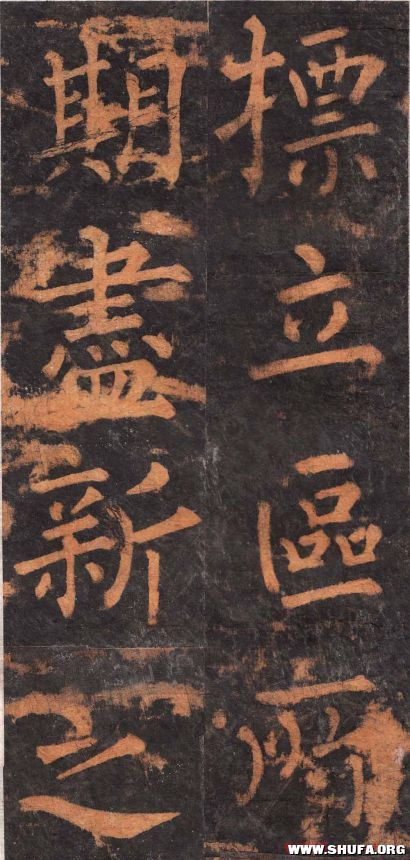 摽立區所
期盡新之
WWW.SHUFA.ORG